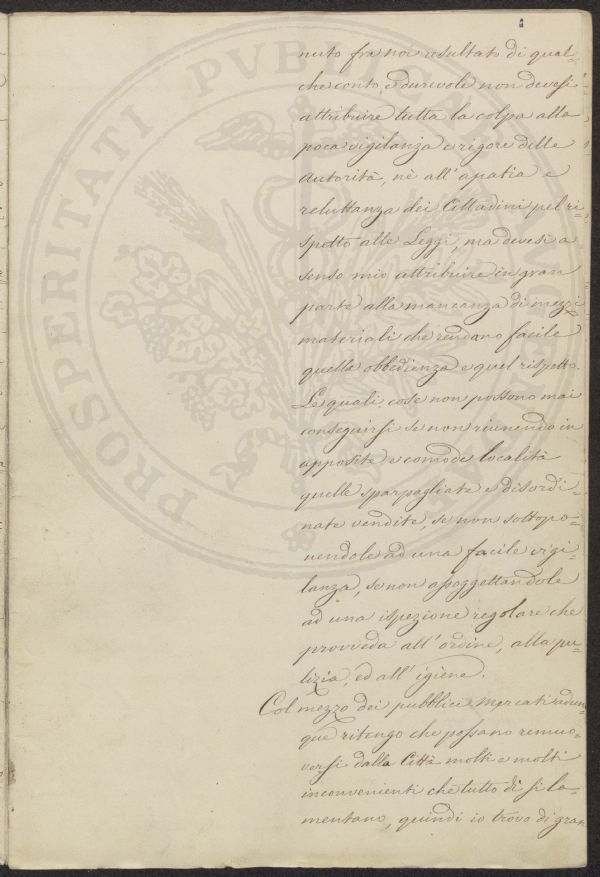 nuto fra noi resultato di qual=
che conto, e durevole non devesi
attribuire tutta la colpa alla
poca vigilanza e rigore delle
Autorità, nè all'apatia e
reluttanza dei Cittadini pel ri=
spetto alle Leggi, ma devesi a
senso mio attribuire in gran
parte alla mancanza di mezzi
materiali che rendano facile
quella obbedienza e quel rispetto.
Le quali cose non possono mai
conseguirsi se non riunendo in
apposite e comode località
quelle sparpagliate e disordi=
nate vendite, se non sottopo=
nendole ad una facile vigi=
lanza, se non assoggettandole
ad una ispezione regolare che
provveda all'ordine, alla pu=
lizia, ed all'igiene.
Col mezzo dei pubblici Mercati adun=
que ritengo che possano remuo=
versi dalla Città molti e molti
inconvenienti che tutto dì si la=
mentano, quindi io trovo di gran
PROSPERITATI PUBLICAE